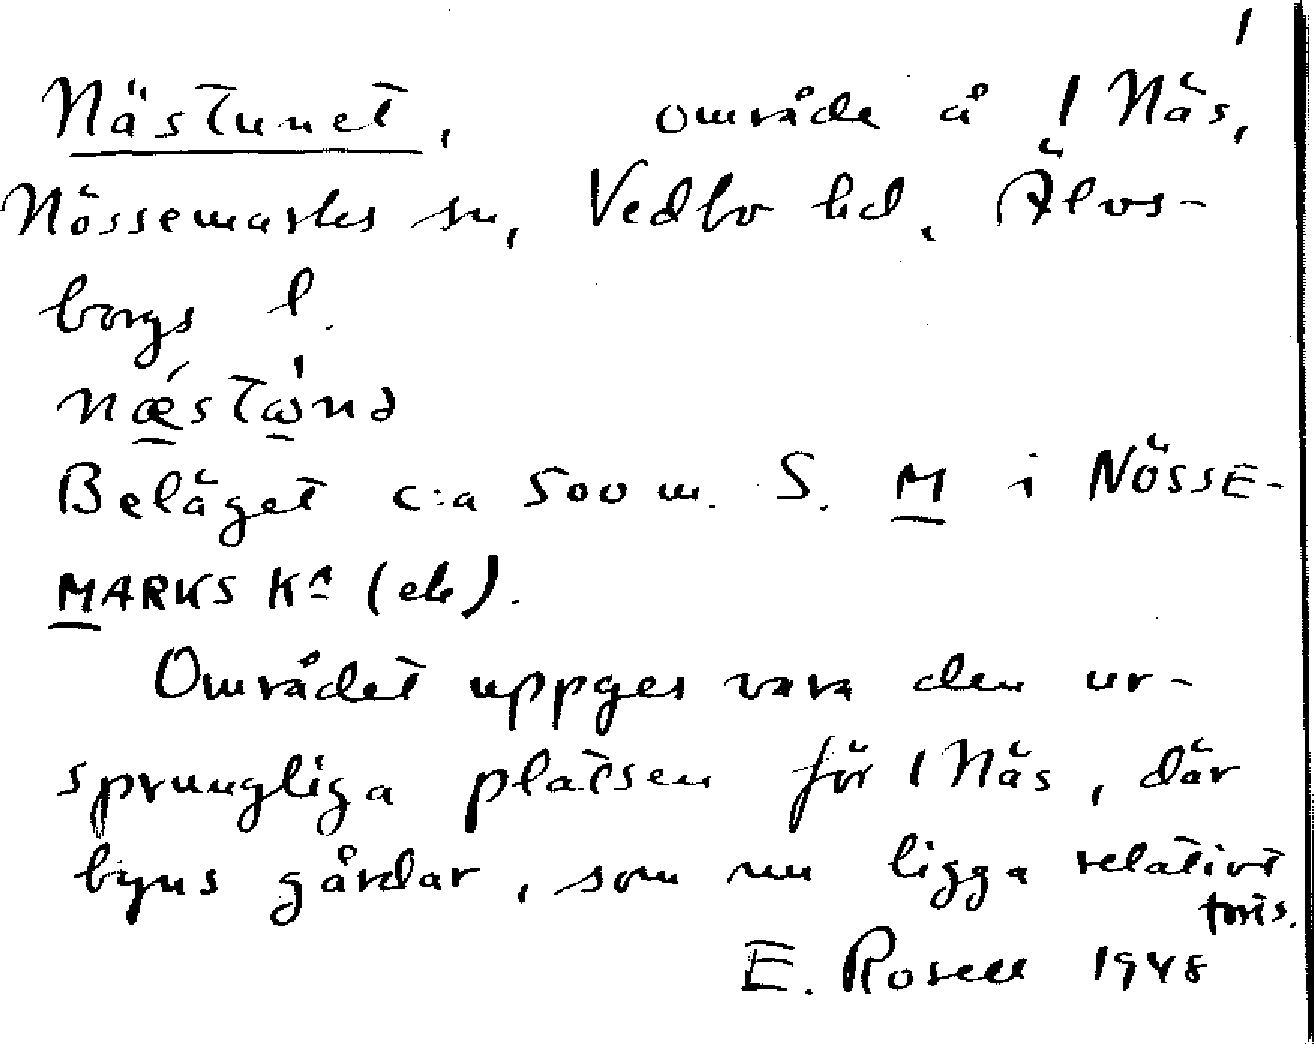 1
Nästunet, område å 1 Näs,
Nössemarks sn, Vedbo hd, Älvs-
borgs l.
næ´stω`nə
Beläget c:a 500 m. S. M i NÖSSE-
MARKS Ka (ek).
Området uppges vara den ur-
sprungliga platsen för 1 Näs, där
byns gårdar, som nu ligga relativt
forts.
E. Rosell 1948